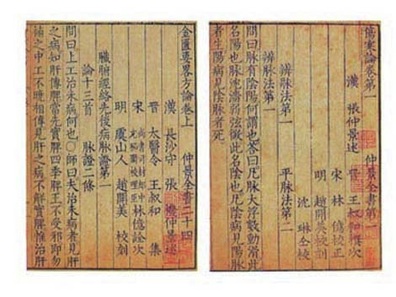 傷寒論卷第一 仲景全書第一
漢 張仲景述
晉 王叔和撰次
宋 林億校正
明 趙開美校刻
沈琳仝校
辨脈法第一 平脈法第二
辨脈法第一
問曰脈有陰陽何謂也答曰凡脈大浮數動滑此
名陽也脈沈濇弱弦微此名陰也凡陰病見陽脈
者生陽病見陰脈者死
金匱要略方論卷上 仲景全書二十四
漢 長沙守 張 機仲景述
晉 太醫令 王叔和 集
宋 林億詮次
明 虞山人 趙開美 校刻
臟腑經絡先後病脈證第一
論十三首 脈證二條
問曰上工治未病何也○師曰夫治未病者見肝
之病知肝傳脾當先實脾四季脾王不受邪即勿
補之中工不曉相傳見肝之病不解實脾惟治肝